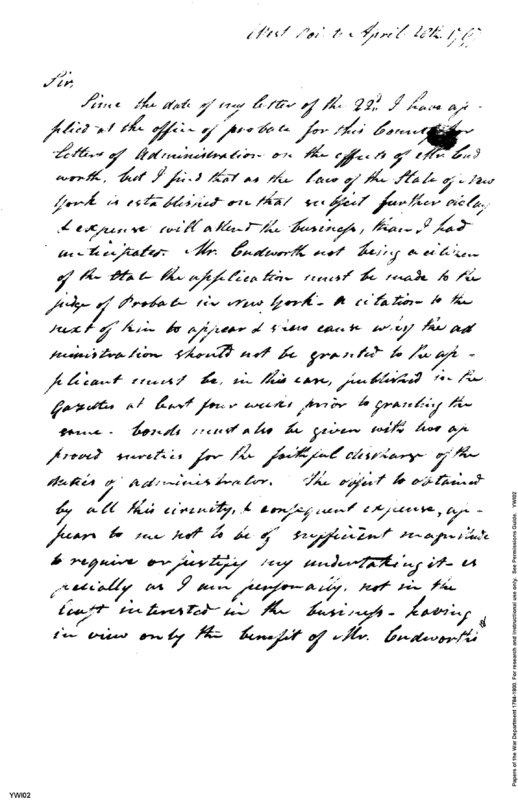 West Point April 28th 1797
Sir,
Since the date of my letter of the 22d. I have ap-
plied at the office of probate for this County for
letters of Administration on the effects of Mr. Cud
worth, but I find that as the law of the State of New
York is established on that subject further delay
& expense will attend the business, than I had
anticipated. Mr. Cudworth not being a citizen
of the State the application must be made to the
judge of Probate in New York - A citation to the
next of kin to appear & shew cause why the ad
ministration should not be granted to the ap-
plicant must be, in this case, published in the
Gazettes at least four weeks prior to granting the
same - bonds must also be given with two ap
proved sureties for the faithful discharge of the
duties of administrator. The object to obtained
by all this circuity, & consequent expense, ap-
pears to me not to be of sufficient magnitude
to require or justify my undertaking it - es
pecially as I am personally, not in the
least interested in the business - having
in view only the benefit of Mr. Cudworth's
Papers of the War Department 1784-1800. For research and instructional use only. See Permissions Guide. YWI02
YWI02